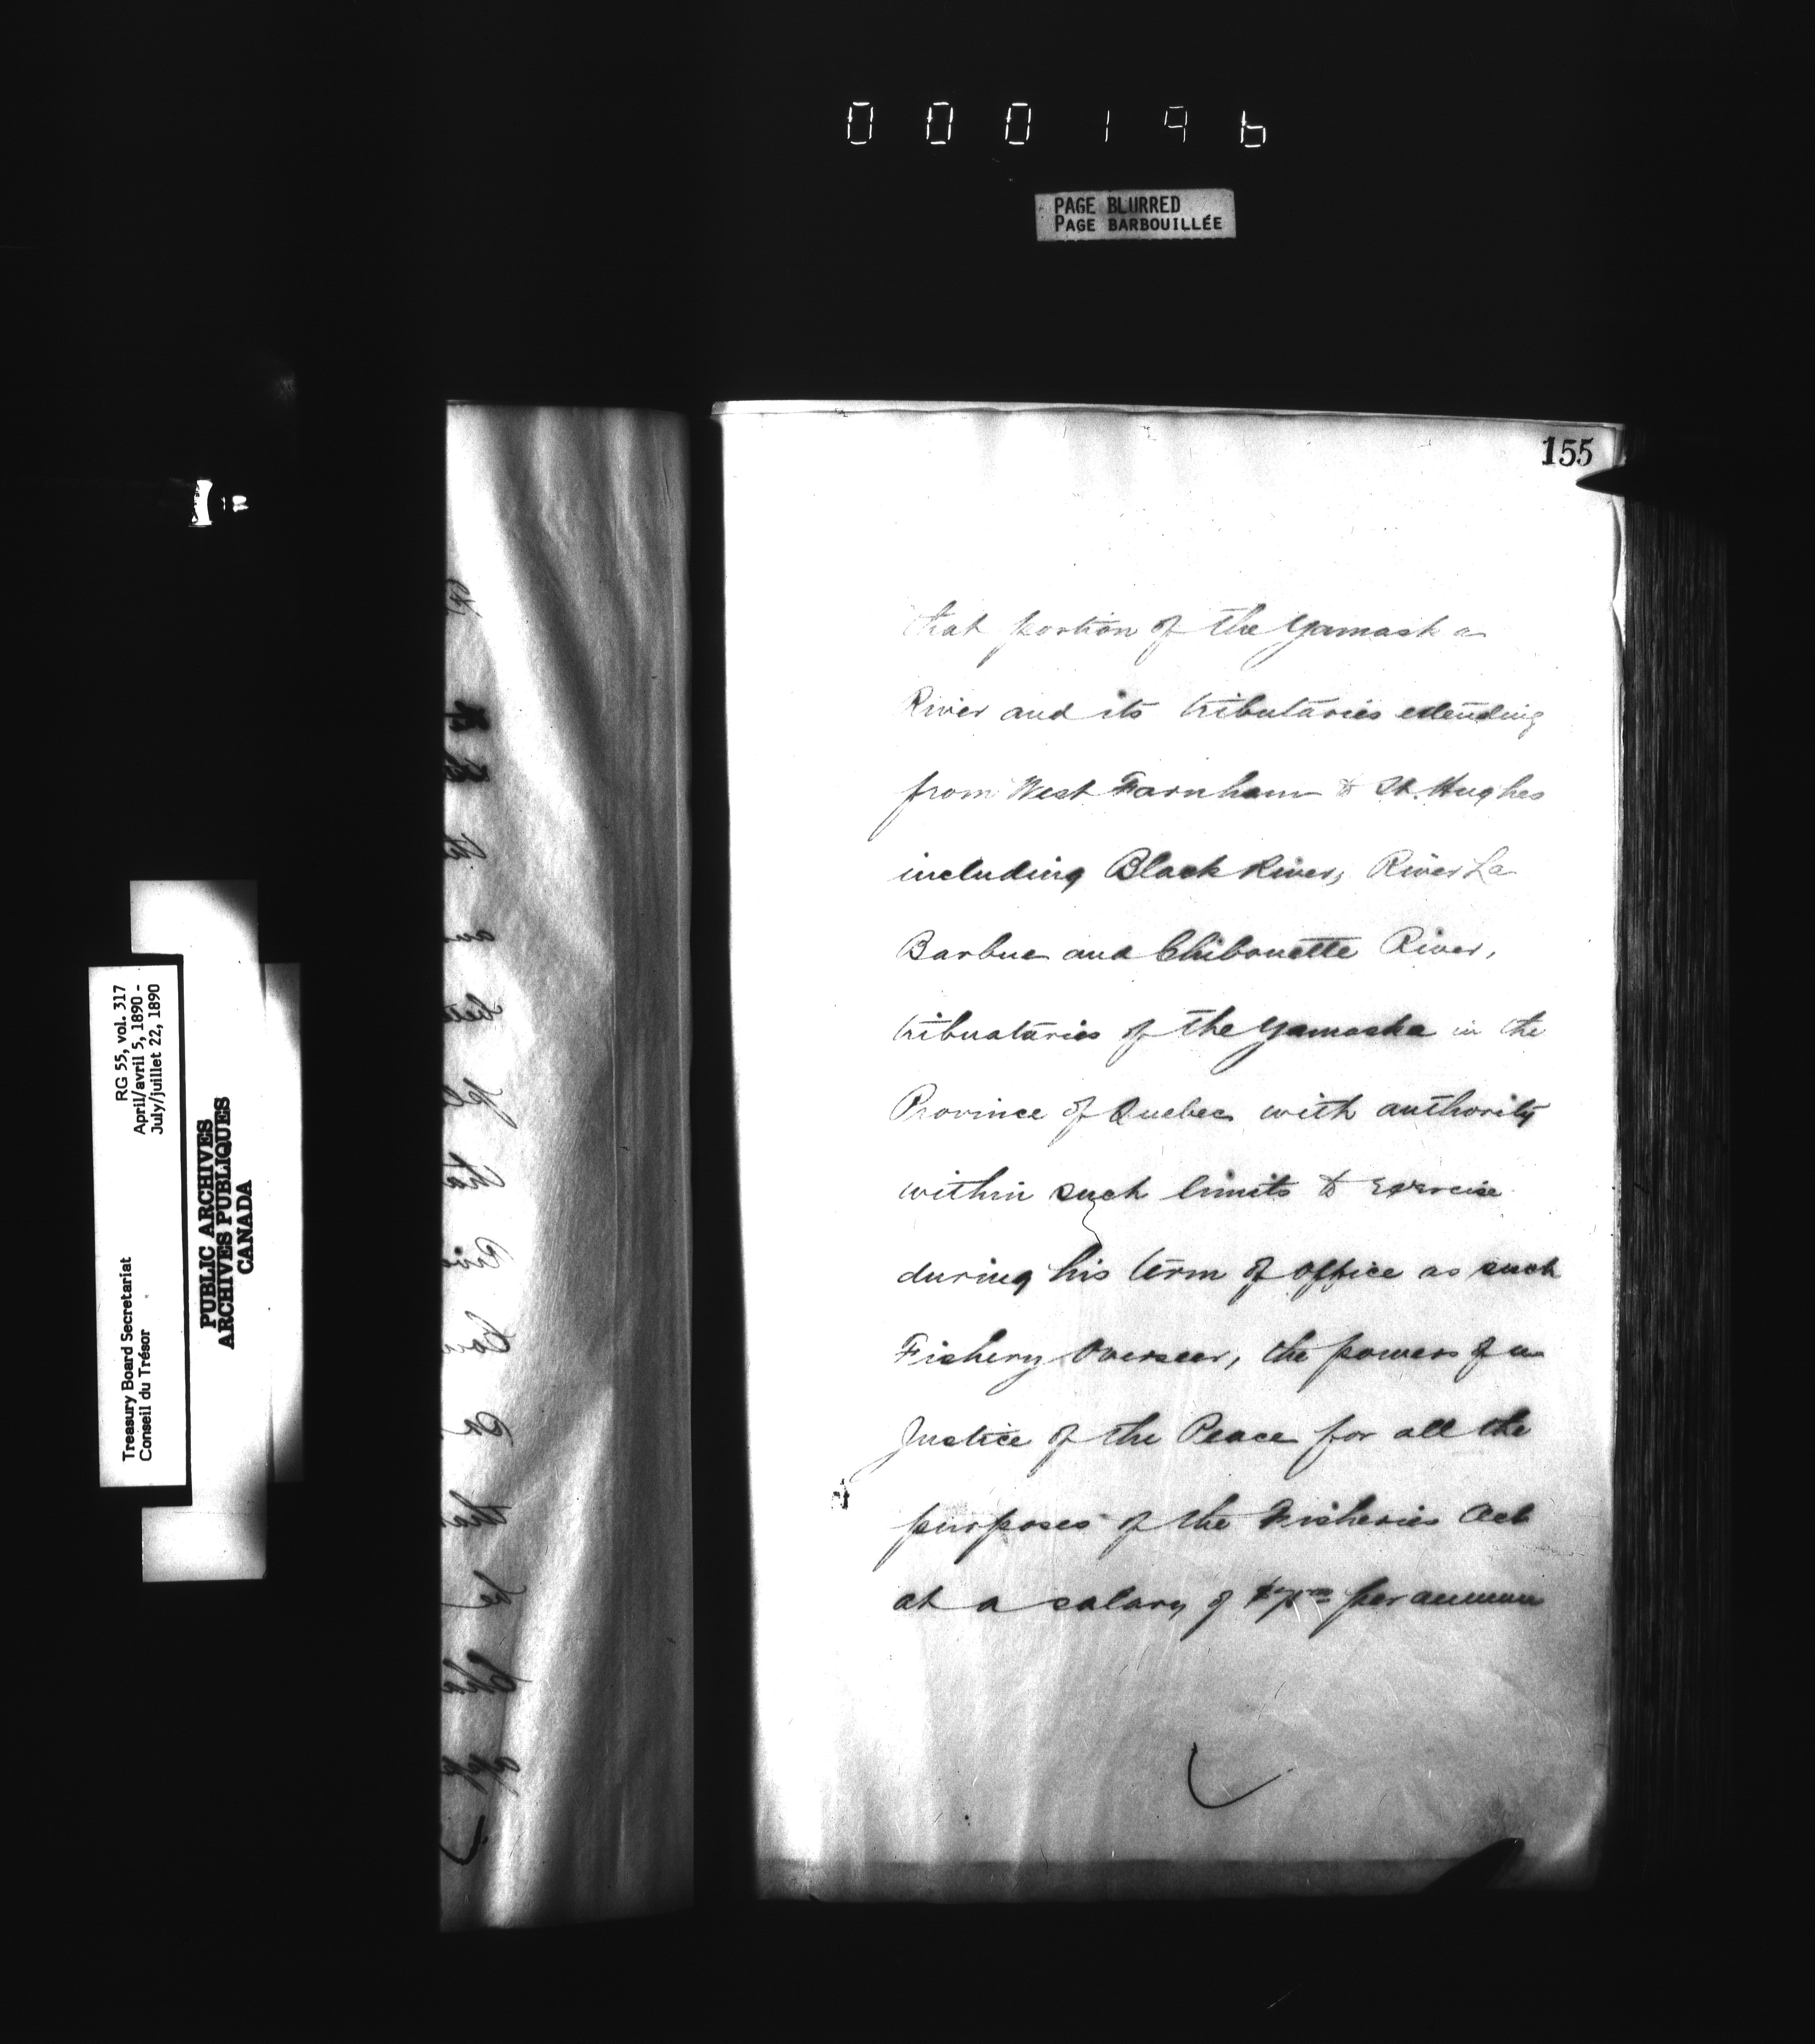 000196
PAGE BLURRED
PAGE BARBOUILLÉE
155
that portion of the Yamaska
River and its tributaries extending
from West Farnham to St. Hughes
including Black River, River La
Barbue and Chibouette River,
tribuataries of the Yamaska in the
Province of Quebec with authority
within such limits to exercise
during his term of office as such
Fishery Overseer, the powers of a
Justice of the Peace for all the
purposes of the Fisheries Act
at a salary of per annum
RG 55, vol. 317
April/avril 5, 1890 -
July/juillet 22, 1890
Treasury Board Secretariat
Conseil du Trésor
PUBLIC ARCHIVES
ARCHIVES PUBLIQUES
CANADA